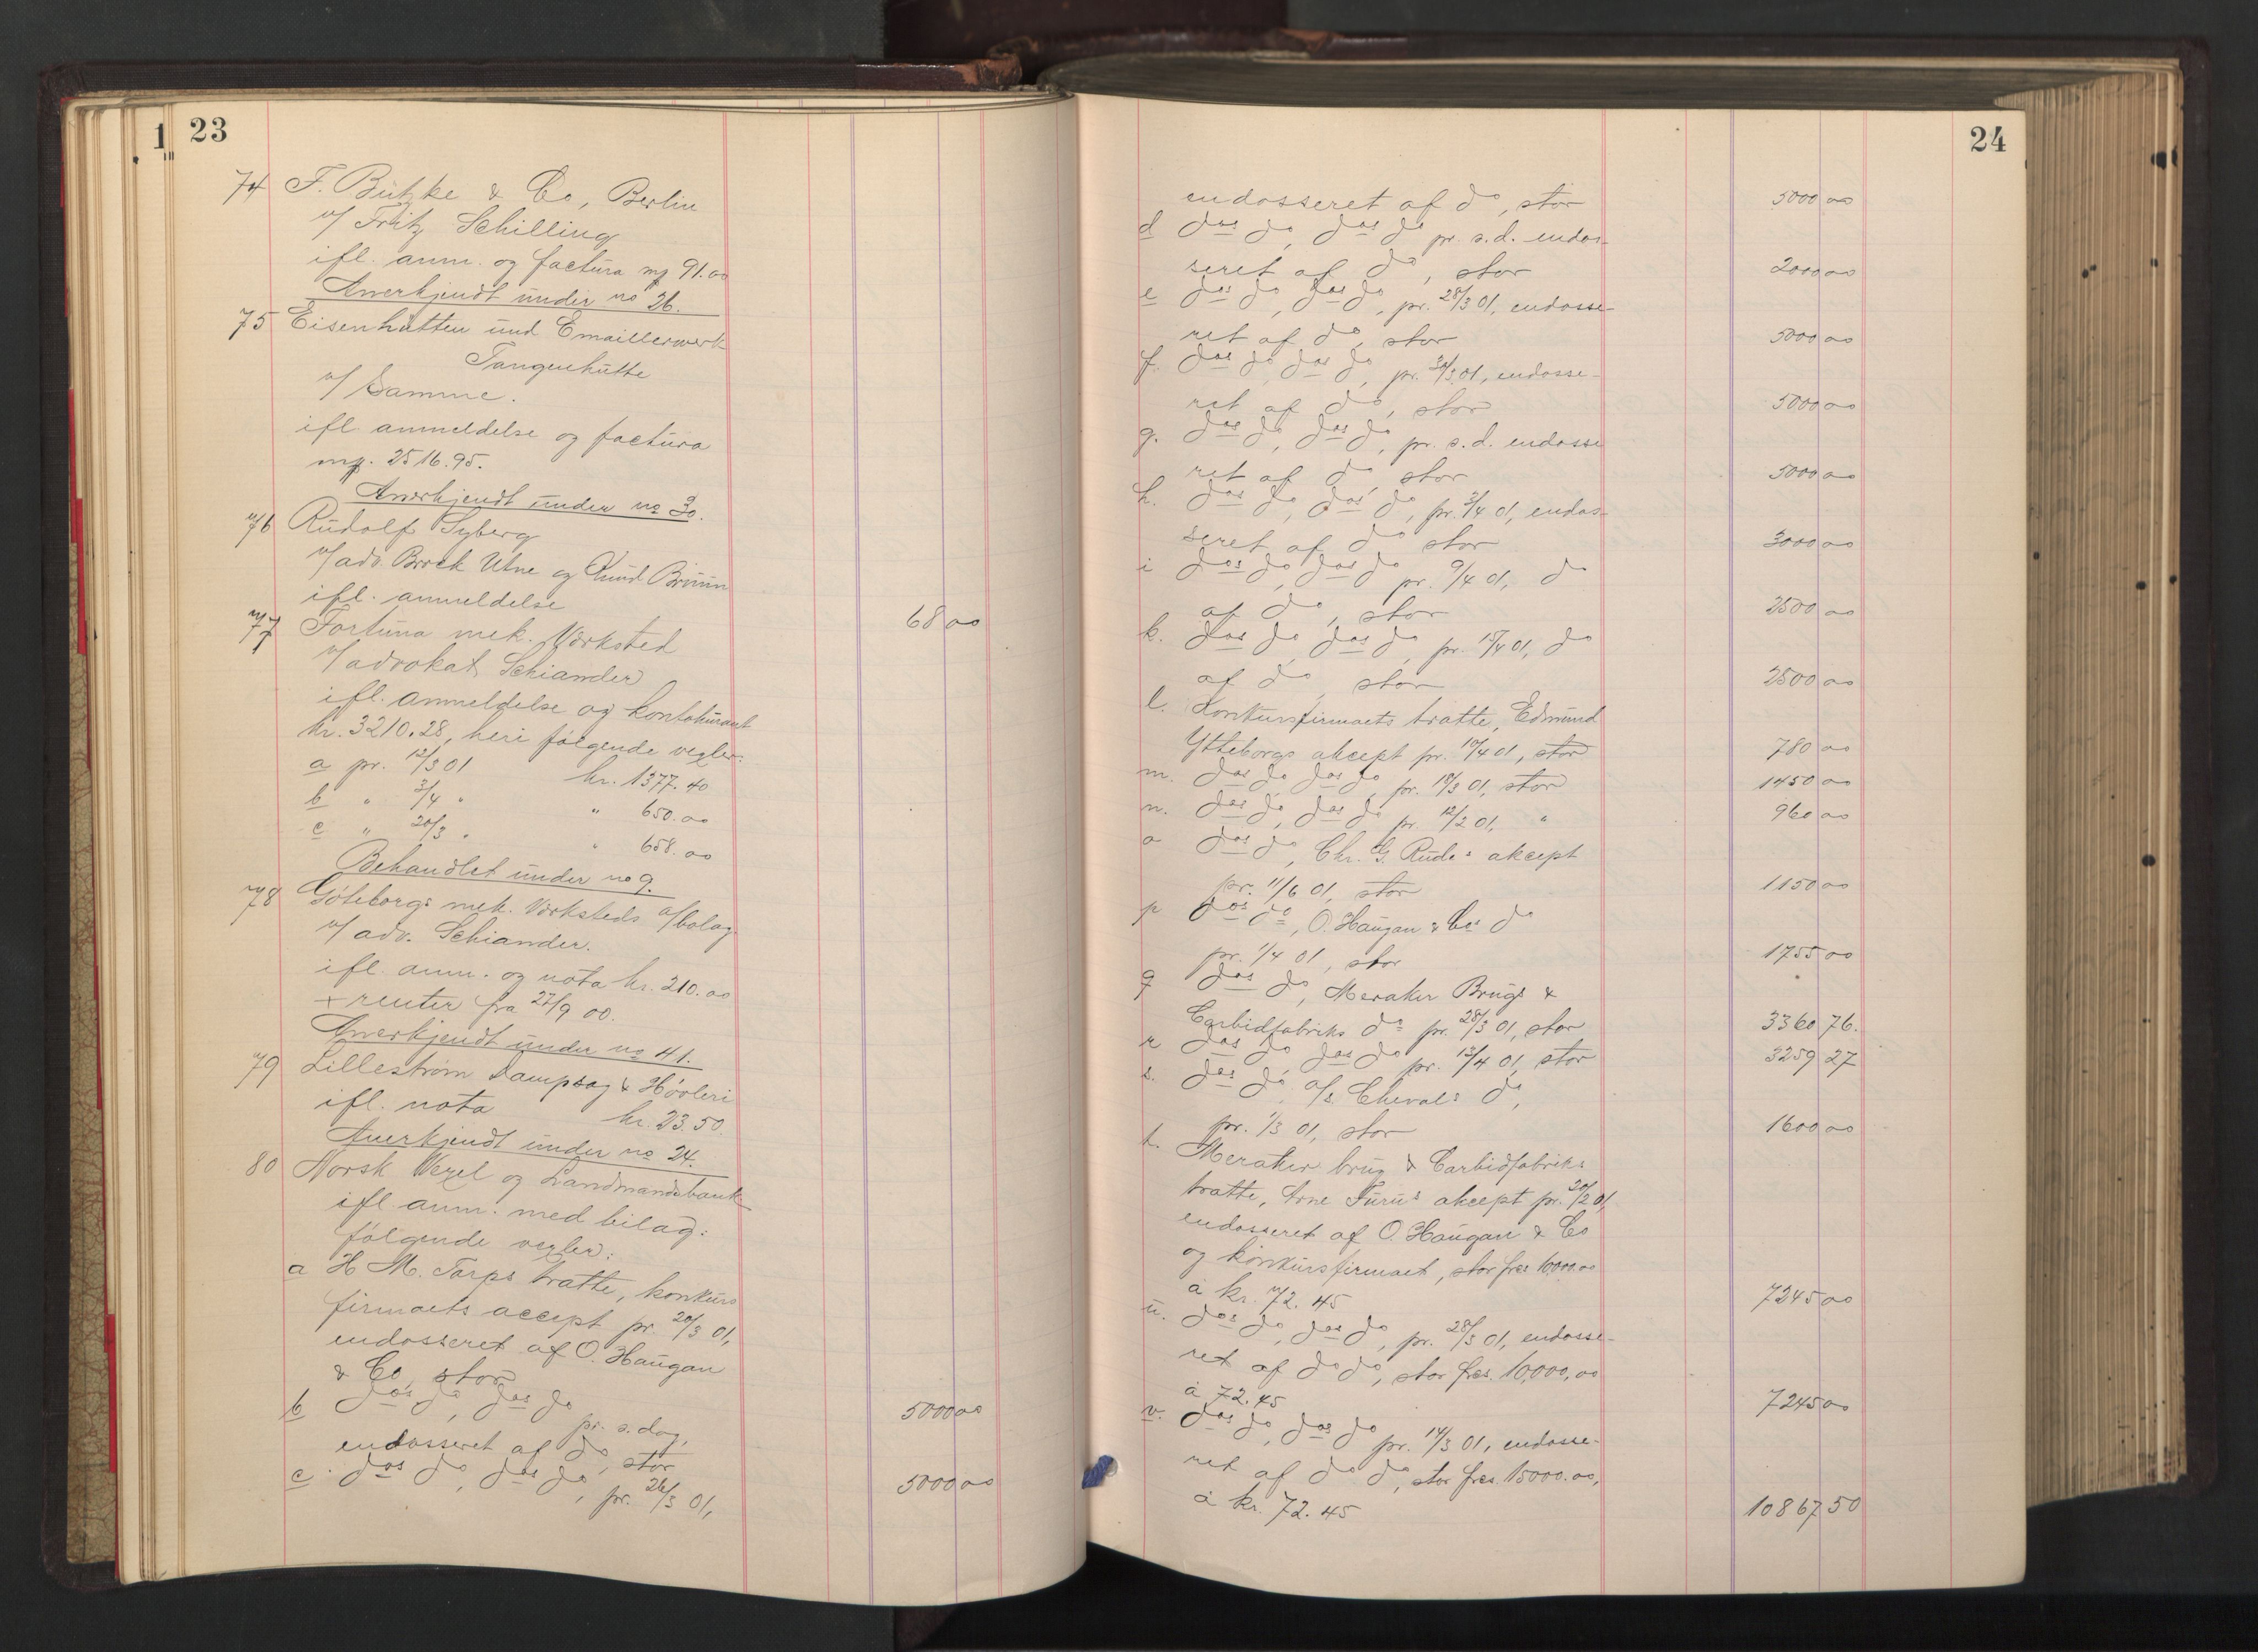 1 23
74 F. Bützke & Co, Berlin
v/ Fritz Schilling
ifl. anm. og factura mg 91.00
Anerkjendt under no 26.
75 Eisenhütten und Emaillerwerk
Tangerhütte
v/ Samme.
ifl. anmeldelse og factura
mg. 2516.95.
Anerkjendt under no 30.
76 Rudolf Syberg
v/ adv. Brock Utne og Bruun
ifl. anmeldelse 68 00
77 Fortuna mek. Værksted
v/ advokat Schiander
ifl. anmeldelse og kontokurant
kr. 3210.28, heri følgende vexler:
a pr. 12/3 01 kr. 1377.40
b " 3/4 " " 650.00
c " 20/3 " " 658.00
Behandlet under no 9.
78 Göteborgs mek. Værksteds a/bolag
v/ adv. Schiander.
ifl. anm. og nota kr. 210.00
+ renter fra 27/9 00.
Anerkjendt under no 41.
79 Lillestrøm Dampsag & Høvleri
ifl. nota kr. 23.50.
Anerkjendt under no 24.
80 Norsk Vexel og Landmandsbank
ifl. anm. med bilag:
følgende vexler:
a H. M. Torps tratte, konkurs
firmaets accept pr. 20/3 01,
endosseret af O. Haugan
& Co, stor 5000 00
b dos do, dos do pr. s. dag,
endosseret af do, stor 5000 00
c. dos do, dos do, pr. 26/3 01,
24
endosseret af do, stor 5000 00
d dos do, dos do pr. s.d. endos-
seret af do, stor 2000 00
e dos do, dos do, pr. 28/3 01, endosse-
ret af do, stor 5000 00
f. dos do, dos do, pr. 30/3 01, endosse-
ret af do, stor 5000 00
g. dos do, dos do, pr. s.d. endosse
ret af do, stor 5000 00
h. dos do, dos do, pr. 3/4 01, endos-
seret af do stor 3000 00
i dos do, dos do pr. 9/4 01, do
af do, stor 2500 00
k. dos do, dos do, pr. 15/4 01, do
af do, stor 2500 00
l. Konkursfirmaets tratte, Edmund
Ytteborgs akcept pr. 10/4 01, stor 780 00
m. dos do, dos do, pr. 18/3 01, stor 1450 00
n. dos do, dos do pr. 12/2 01, " 960 00
o dos do, Chr. G. Rude's akcept
pr. 11/6 01, stor 1150 00
p dos do, O. Haugan & Cos do
pr. 1/4 01, stor 1755 00
q dos do, Meraker Brugs &
Carbidfabriks do pr. 28/3 01, stor 3360 76.
r dos do, dos do pr. 13/4 01, stor 3259 27
s. dos do, a/s. Chevals do,
pr. 1/3 01, stor 1600 00
t. Meraker brug & Carbidfabriks
tratte, Arne Furu's akcept pr. 20/2 01,
endosseret af O. Haugan & Co
og konkursfirmaet, stor frcs 10,000.00
à kr. 72.45 7245 00
u. dos do, dos do, pr. 28/3 01, endosse-
ret af do do, stor frcs. 10,000,00
à 72.45 7245 00
v. dos do, dos do pr. 14/3 01, endosse-
ret af do do, stor frcs. 15000.00,
à kr. 72.45 10867 50